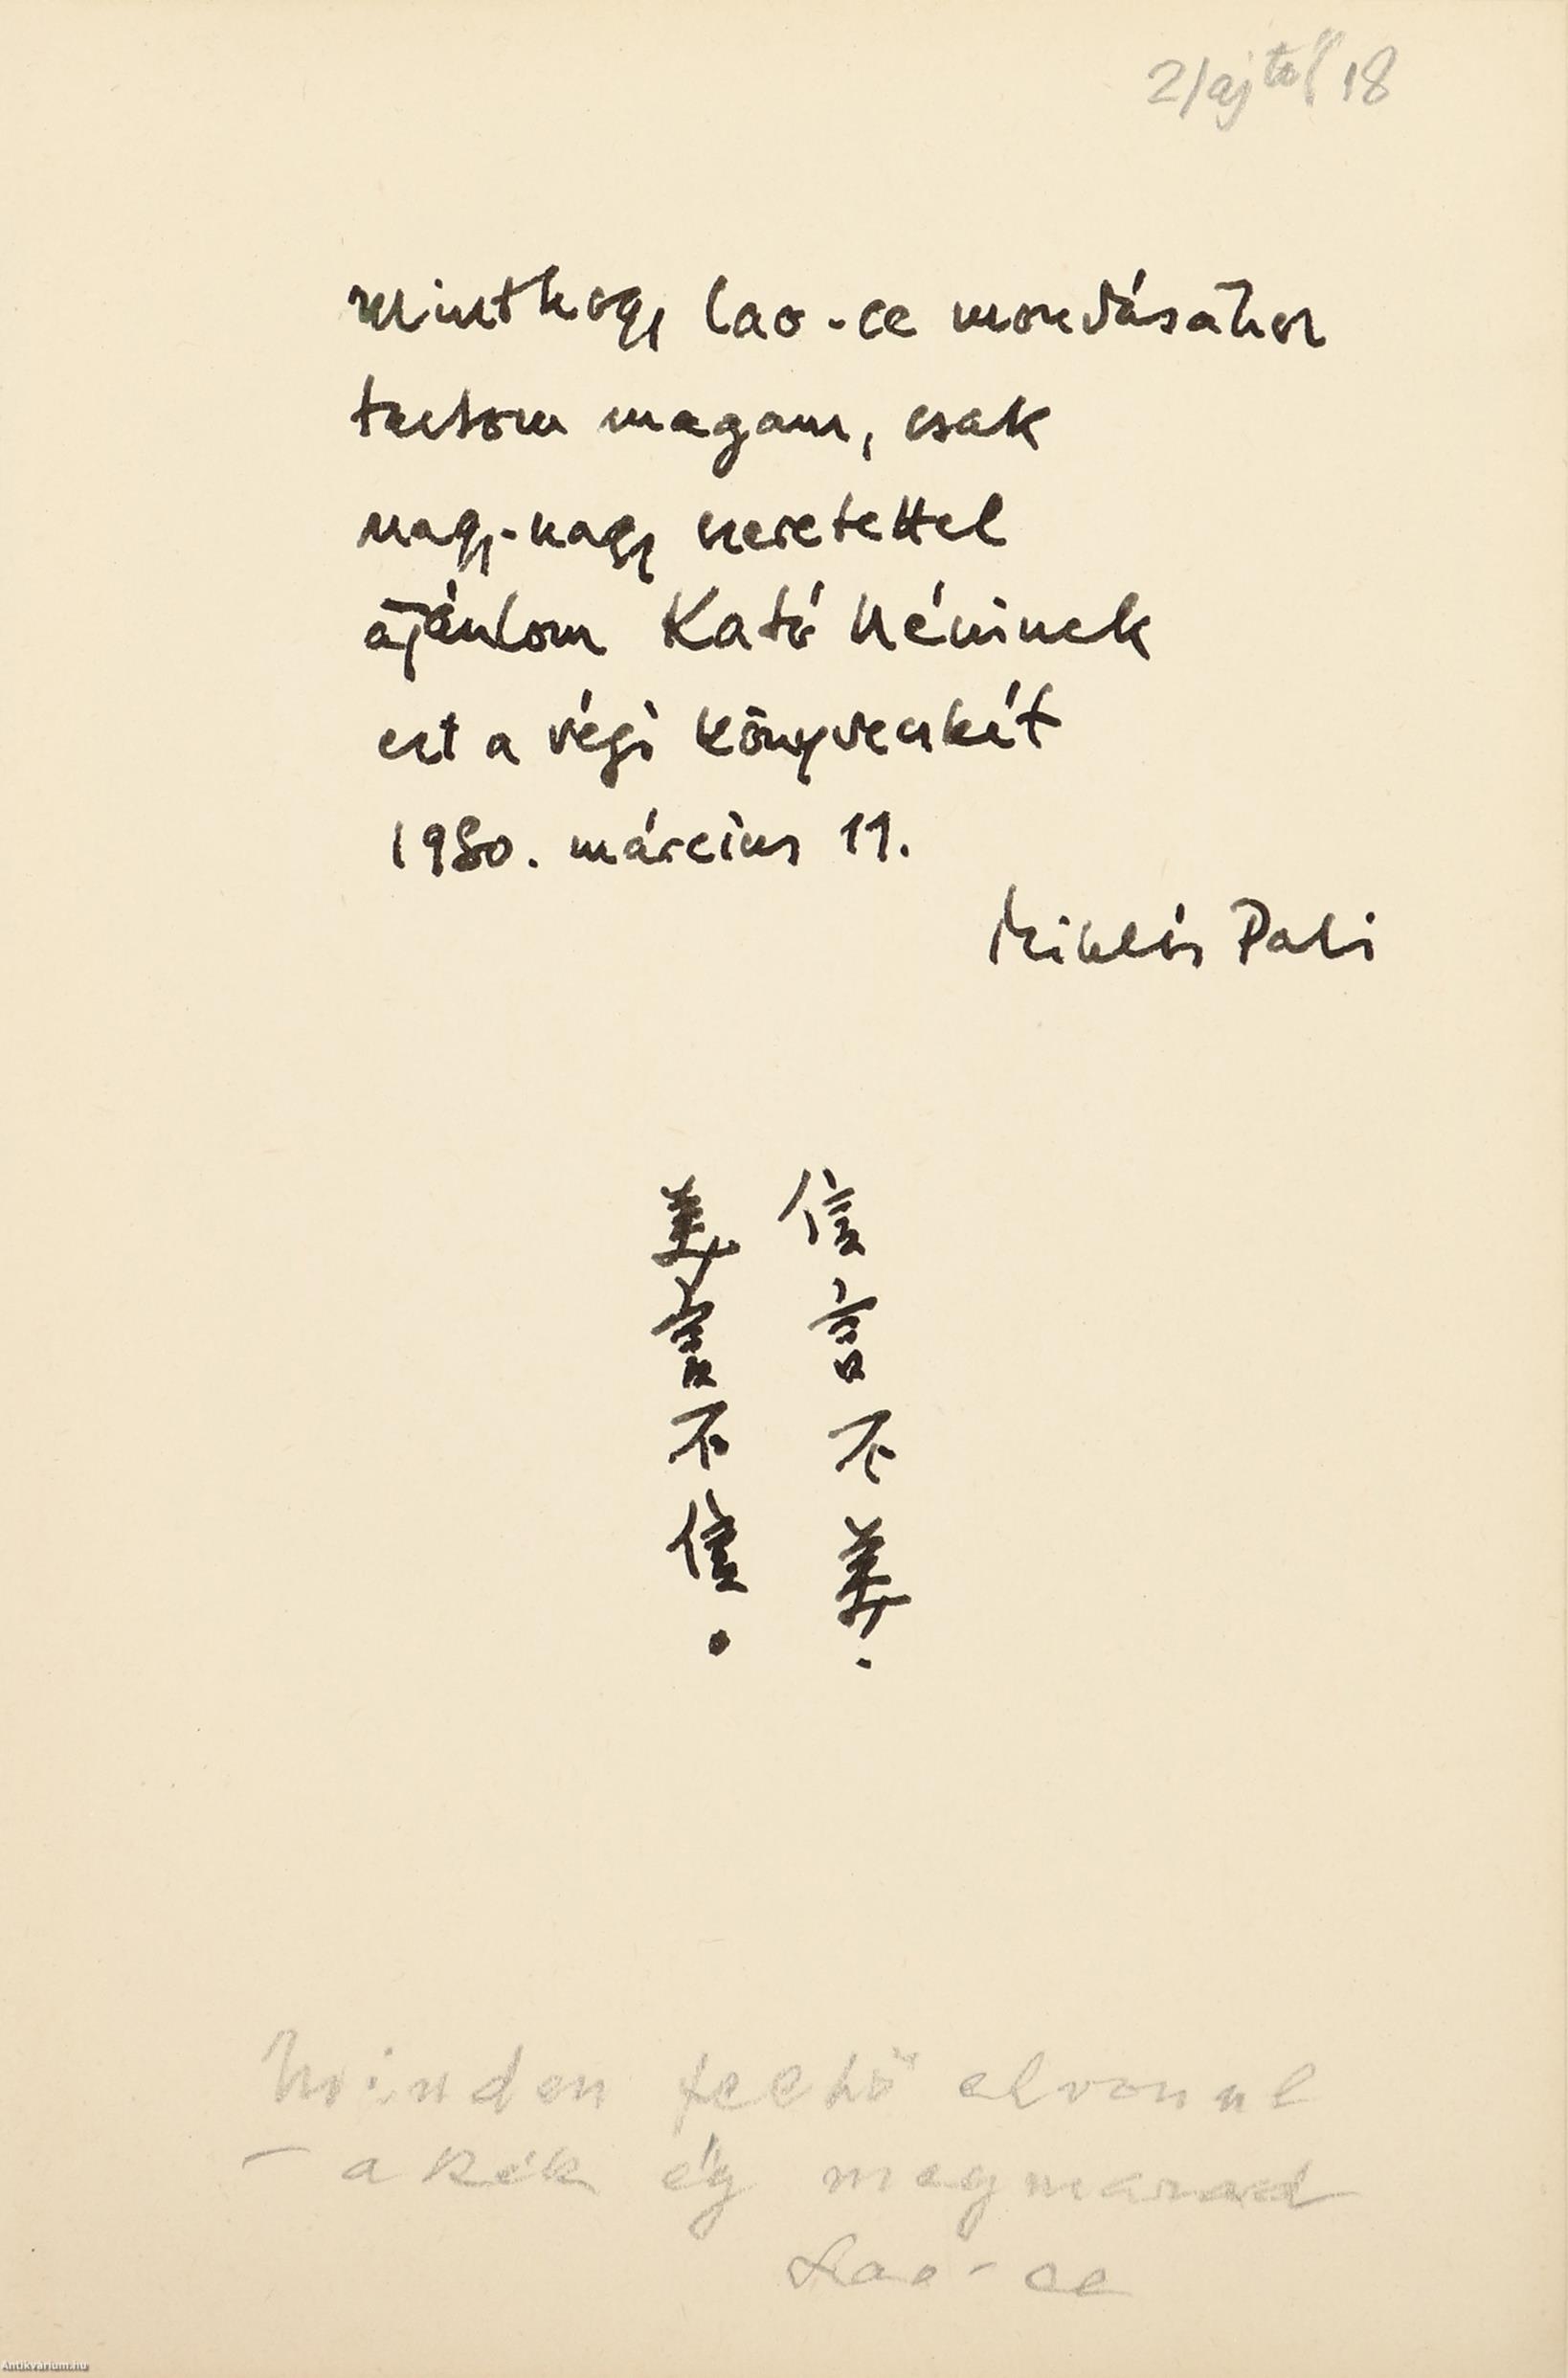 2/ajtól 18
Minthogy Lao-ce mondásához
tartom magam, csak
nagy-nagy szeretettel
ajánlom Kató Néninek
ezt a régi könyvecskét
1980. március 11.
Miklós Pali
信言不美.
美言不信.
Minden felhő elvonul
– a kék ég megmarad
Lao-ce
Antikvarium.hu